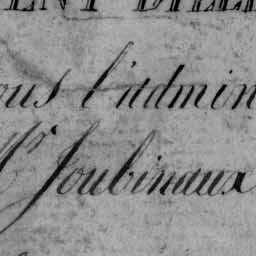 ous l'admin
Mr Joubinaux